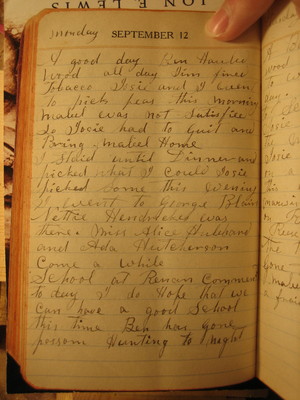 JON E. LEWIS
monday SEPTEMBER 12
A good day Ben Hauled
Wood all day Jim fired
Tobacco Josie and I went
to pick peas this morning
mabel was not satisfied
So Josie had to Quit and
Bring mabel Home
I Staid until Dinner and
picked what I could Josie
picked Some this evening
I went to George Blanks
Nettie Hendricks was
there. Miss Alice
and Ada Hutcherson
Come a while
School at Renan Commenced
to day I do Hope that we
can have a good School
this time Ben has gone
possom Hunting to night